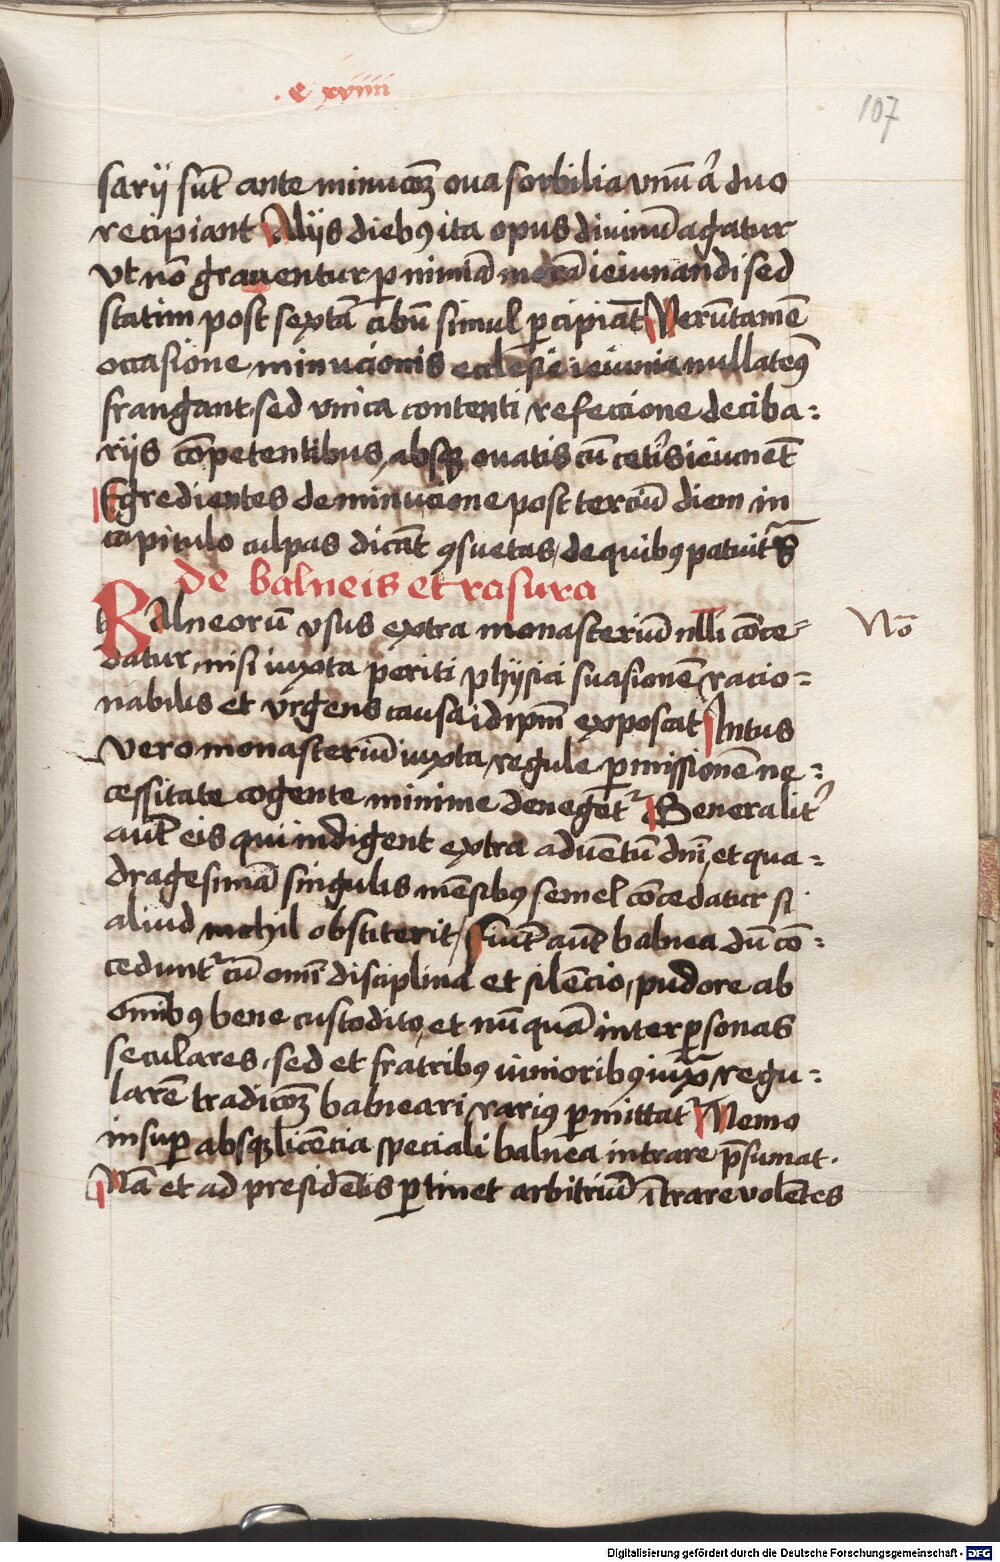 . c xviiii
107
sarij sūt ante minucōꝫ oua sorbilia vnū aͥ duo
recipiant Alijs diebꝯ ita opus diuinū agatur
vt nō grauentur ꝑ nimiā morā ieiunandi sed
statim post sextā cibū simul ꝑcipiāt Verūtamē
occasione minucionis ecclesie ieiunia nullateꝯ
frangant, sed vnica contenti refeccione de ciba⸗
rijs cōpetentibus, absqꝫ ouatis cū ceteris ieiunēt
Egredientes de minucione post terciū diem in
capitulo culpas dicāt ꝯsuetas, de quibꝯ patuit sͣ
De balneis et rasura
BAlneorū vsus extra monasteriū nlli cōce⸗
datur, nisi iuxta periti phijsici suasionē racio⸗
nabilis et vrgens causa idipm̄ exposcat Intus
vero monasteriū iuxta regule ꝑmissionē ne⸗
Nō
cessitate cogente minime denegetᷣ Generalitᷣ
aut̄ eis qui indigent extra aduentū dnī, et qua⸗
dragesimā singulis mēsibꝯ semel cōcedatur si
aliud nichil obstiterit, Fiūt aūt balnea dū cō⸗
ceduntᷣ cū omī disciplina et silēcio, pudore ab
omībꝯ bene custodito, et nūquā inter ꝑsonas
seculares, sed et fratribꝯ iunioribꝯ iuxͣ regu⸗
larē tradicōꝫ balneari rariꝯ ꝑmittatᷣ Nemo
insuꝑ absqꝫ licēcia speciali balnea intrare p̄sumat.
Nā et ad presidētis ꝑtinet arbitriū ītrare volētes
Digitalisierung gefördert durch die Deutsche Forschungsgemeinschaft - DFG